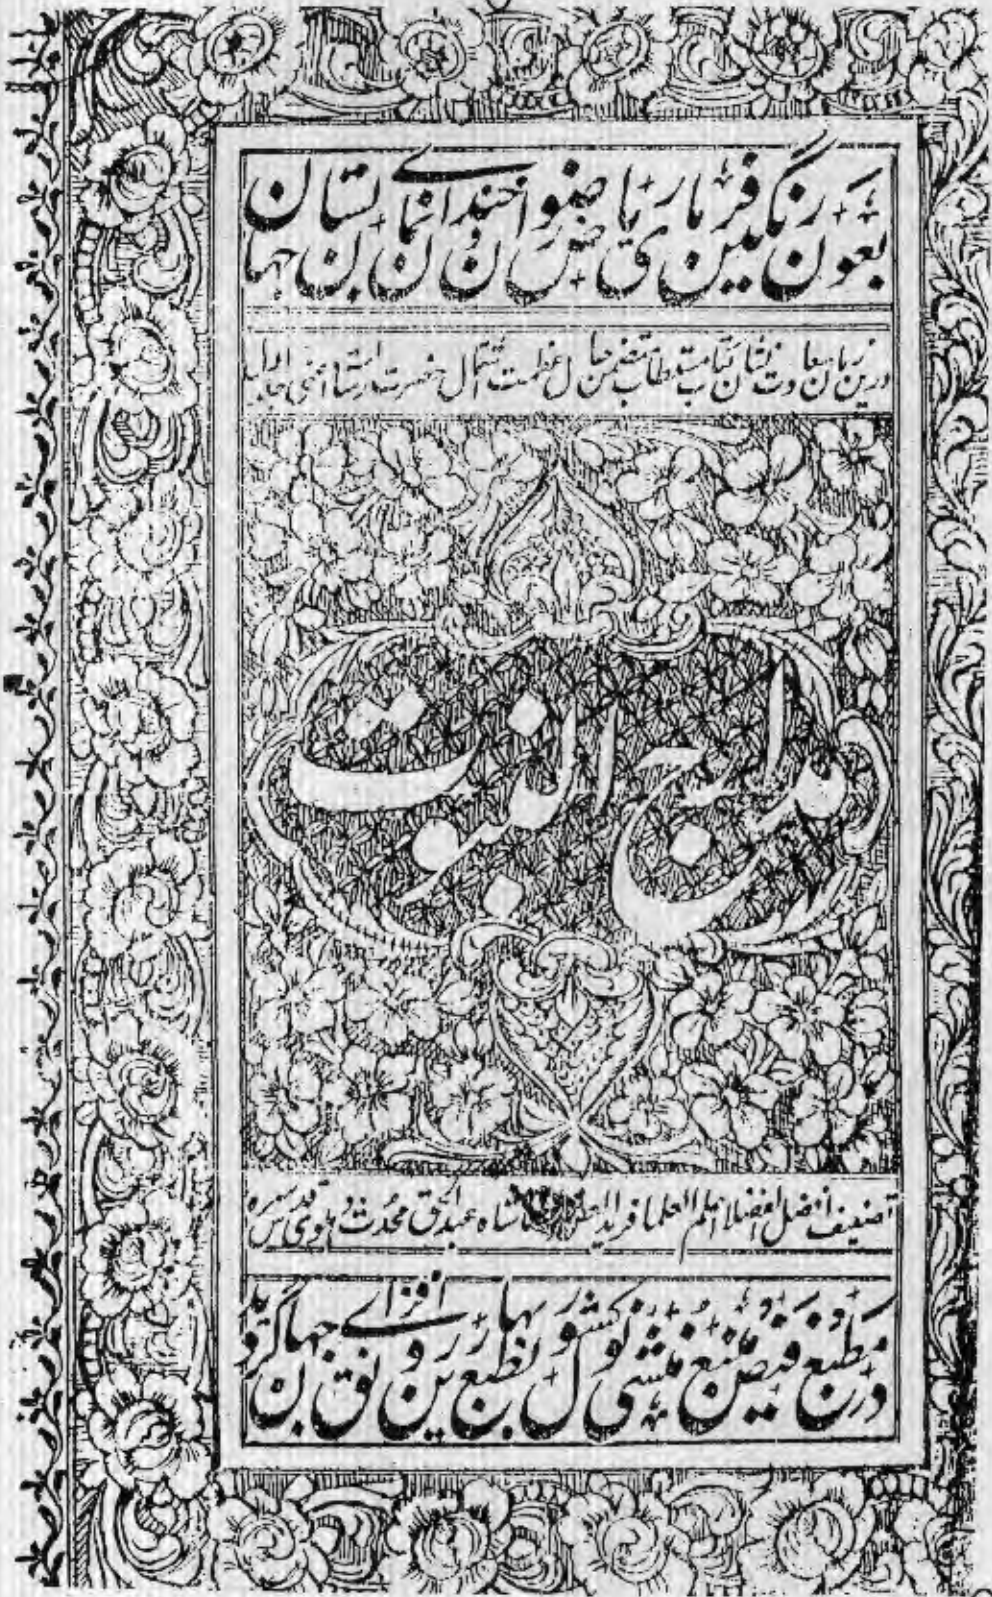 بعون رنگین فرمای ریاض رضوان و خندان نمای بستان جهان
درین زمان سعادت نشان کتاب مستطاب متضمن حال عظمت اشتمال حضرت رسالت اعنی
مدارج النبوت
تصنیف افضل الفضلا اعلم العلما فرید العصر شاه عبد الحق محدث دهلوی قدس سره
در مطبع فیض منبع منشی نولکشور بطبع بهارین رونق افزای جهان گردید